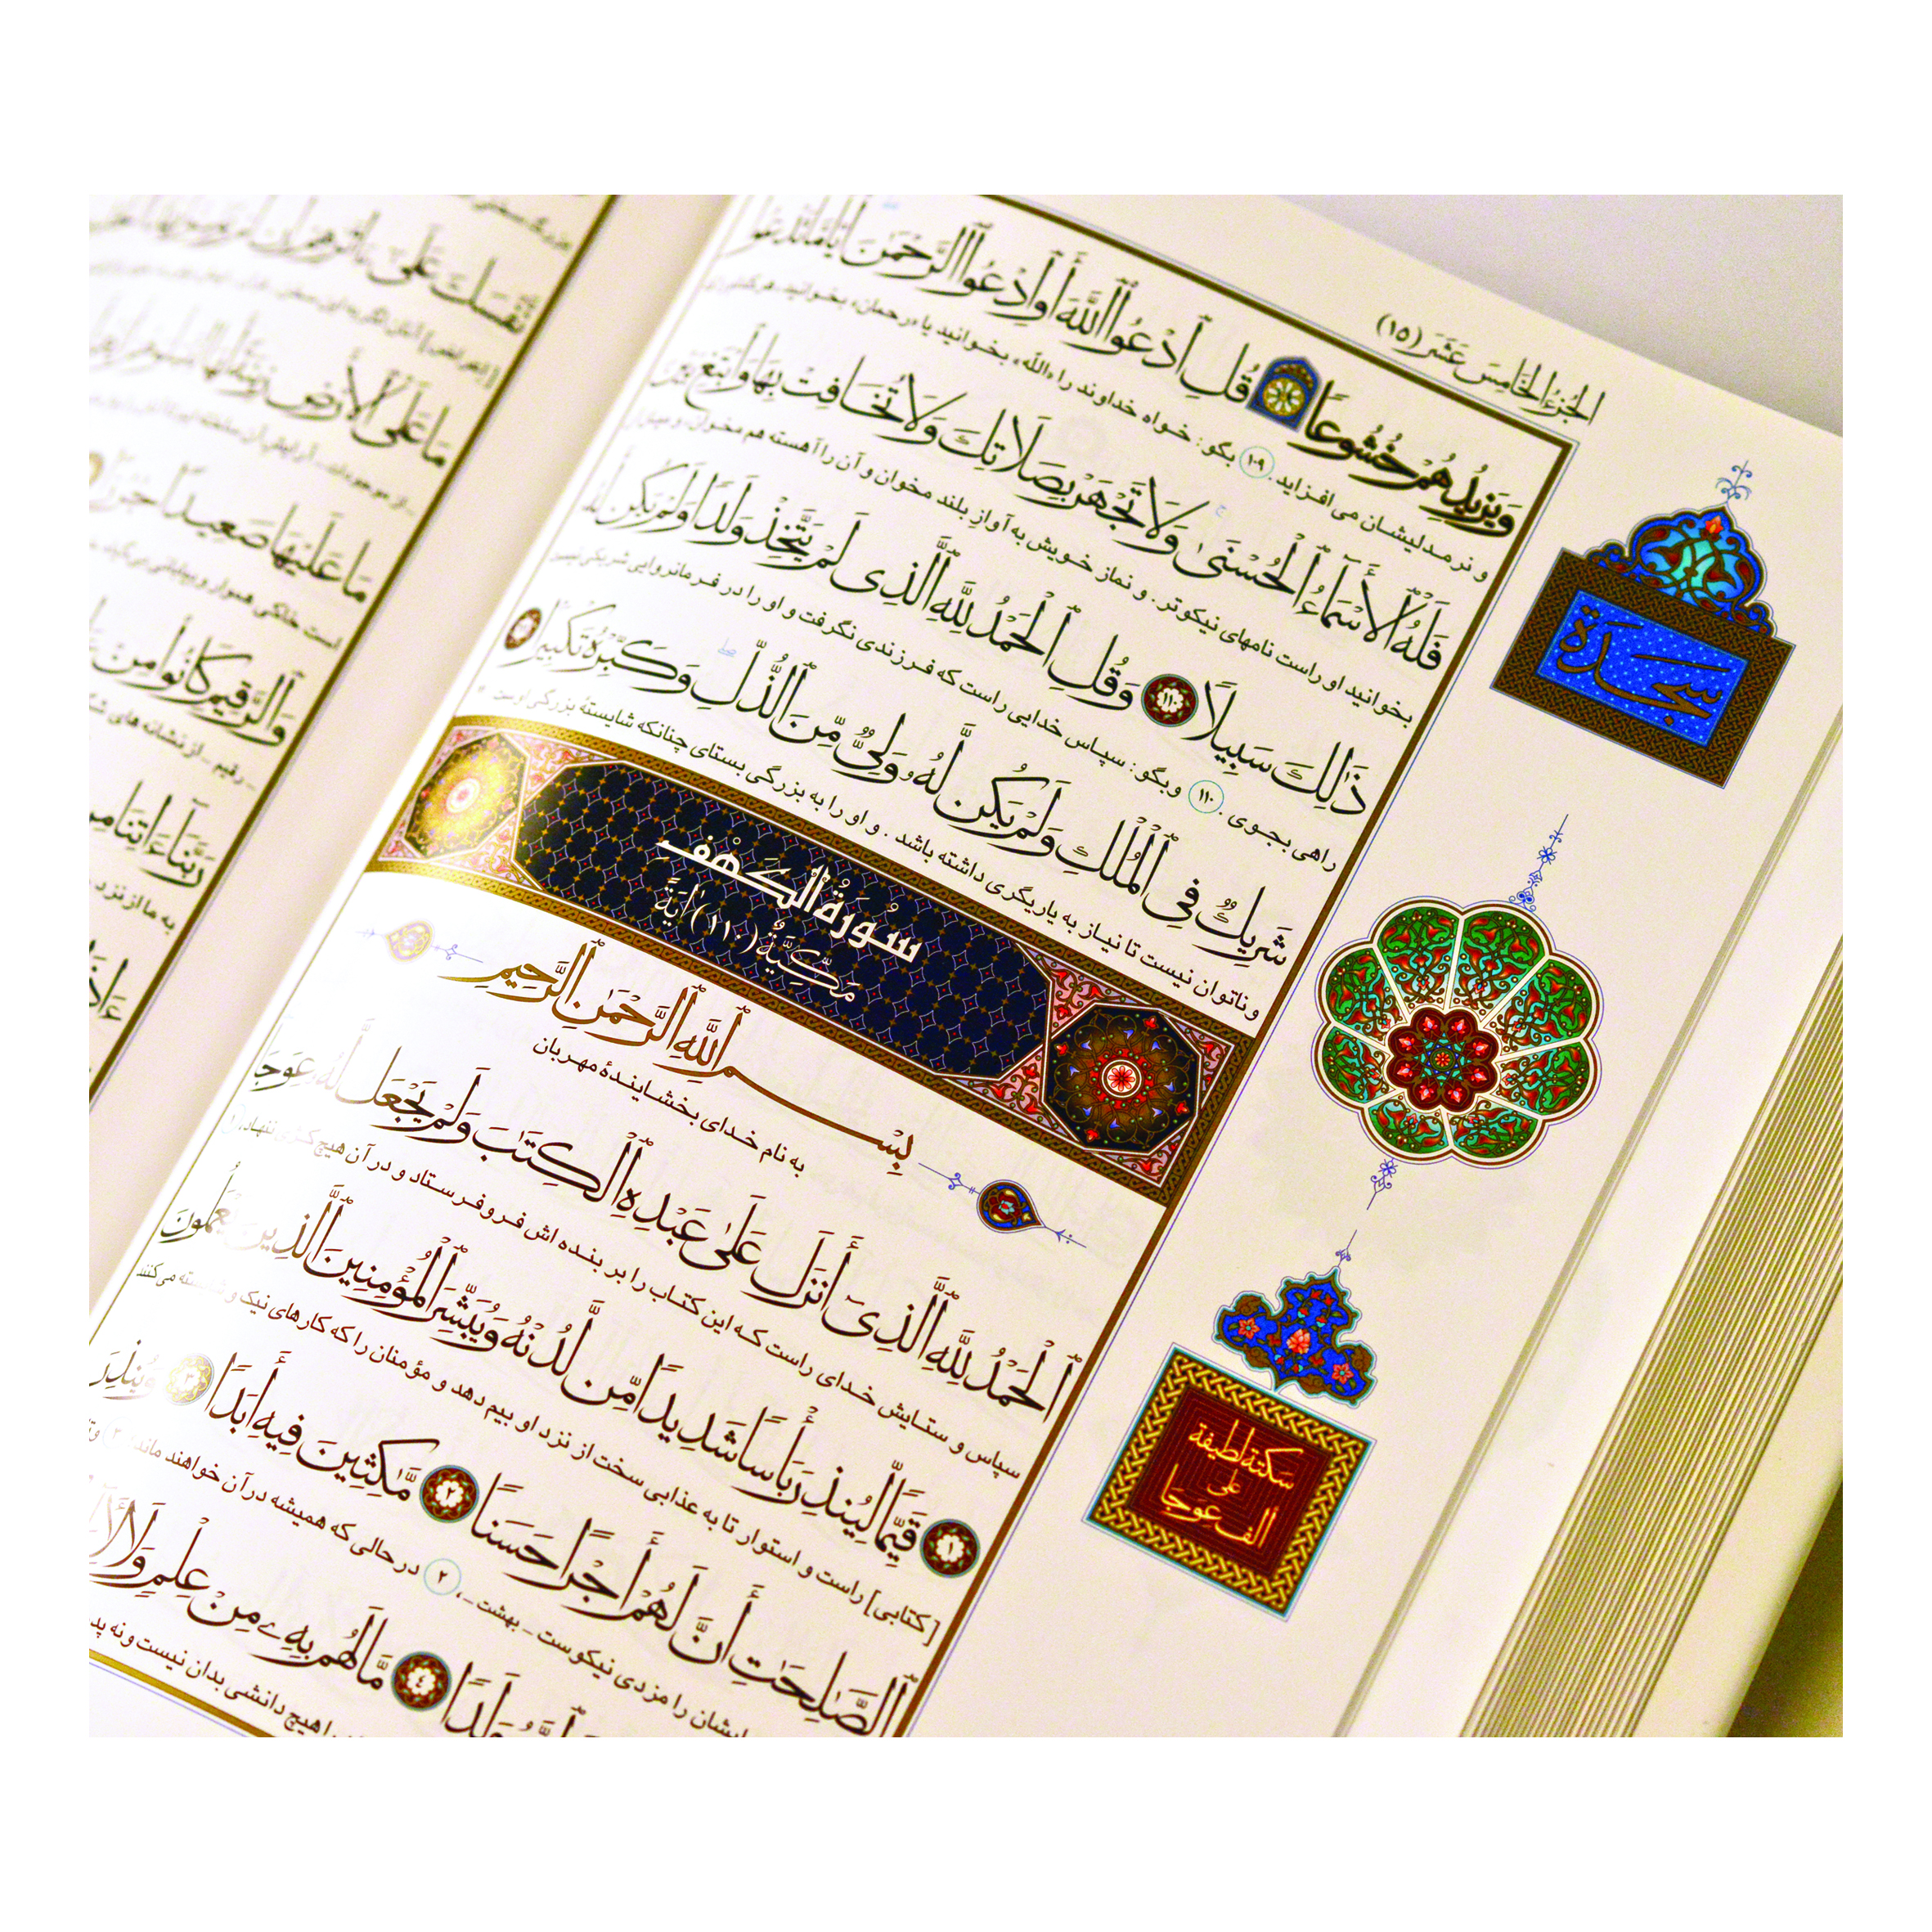 الجُزءُ الخَامِسَ عَشَر (١٥)
وَيَزِيدُهُمْ خُشُوعًا قُلِ ٱدْعُوا ٱللَّهَ أَوِ ٱدْعُوا ٱلرَّحْمَٰنَ أَيًّا مَّا تَدْعُوا
و نرمدلیشان می افزاید. ۱۰۹ بگو: خواه خداوند را «الله» بخوانید یا «رحمان» بخوانید، هر کدام را
فَلَهُ ٱلْأَسْمَآءُ ٱلْحُسْنَىٰ وَلَا تَجْهَرْ بِصَلَاتِكَ وَلَا تُخَافِتْ بِهَا وَٱبْتَغِ بَيْنَ
بخوانید او راست نامهای نیکوتر. و نماز خویش به آوازِ بلند مخوان و آن را آهسته هم مخوان، و میان
ذَٰلِكَ سَبِيلًا ١١٠ وَقُلِ ٱلْحَمْدُ لِلَّهِ ٱلَّذِى لَمْ يَتَّخِذْ وَلَدًا وَلَمْ يَكُن
راهی بجوی. ۱۱۰ و بگو: سپاس خدایی راست که فرزندی نگرفت و او را در فرمانروایی شریکی نیست
شَرِيكٌ فِى ٱلْمُلْكِ وَلَمْ يَكُن لَّهُۥ وَلِىٌّ مِّنَ ٱلذُّلِّ وَكَبِّرْهُ تَكْبِيرًا
و ناتوان نیست تا نیاز به یاریگری داشته باشد. و او را به بزرگی بستای چنانکه شایستهٔ بزرگی اوست
سُورَةُ الكَهْفِ
مَكِّيَّةٌ (١١٠) آيَةً
بِسْمِ ٱللَّهِ ٱلرَّحْمَٰنِ ٱلرَّحِيمِ
به نام خدای بخشایندهٔ مهربان
ٱلْحَمْدُ لِلَّهِ ٱلَّذِىٓ أَنزَلَ عَلَىٰ عَبْدِهِ ٱلْكِتَٰبَ وَلَمْ يَجْعَل لَّهُۥ عِوَجَا
سپاس و ستایش خدای راست که این کتاب را بر بنده اش فرو فرستاد و در آن هیچ کژی ننهاد، ۱
١ قَيِّمًا لِّيُنذِرَ بَأْسًا شَدِيدًا مِّن لَّدُنْهُ وَيُبَشِّرَ ٱلْمُؤْمِنِينَ ٱلَّذِينَ يَعْمَلُونَ
[کتابی] راست و استوار تا به عذابی سخت از نزد او بیم دهد و مؤمنان را که کارهای نیک و شایسته می کنند
ٱلصَّٰلِحَٰتِ أَنَّ لَهُمْ أَجْرًا حَسَنًا ٢ مَّٰكِثِينَ فِيهِ أَبَدًا ٣ وَيُنذِرَ
ایشان را مزدی نیکوست _ بهشت _، ۲ در حالی که همیشه در آن خواهند ماند، ۳
وَلَدًا ٤ مَّا لَهُم بِهِۦ مِنْ عِلْمٍ وَلَا
هیچ دانشی بدان نیست و نه
سَجْدَة
سكتة لطيفة
على
الف عِوَجَا
نَّفْسَكَ عَلَىٰٓ ءَاثَٰرِهِمْ إِن لَّمْ
مَا عَلَى ٱلْأَرْضِ زِينَةً لَّهَا
مَا عَلَيْهَا صَعِيدًا جُرُزًا
است خاکی هموار و بیابانی بی گیاه
وَٱلرَّقِيمِ كَانُوا مِنْ
_ رقیم _ از نشانه های
رَبَّنَآ ءَاتِنَا مِن
به ما از نزد